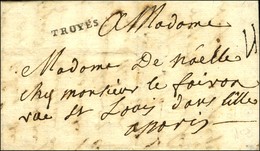 TROYES
A Madame
Madame De
chez monsieur le foiron
rue St Louis dans lille
aparis